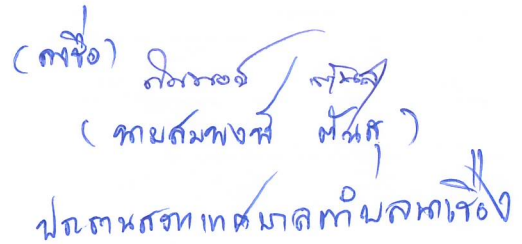 (ลงชื่อ)
(นายสมพงษ์ ตันสุ)
ประธานสภาเทศบาลตำบลนาเชือง